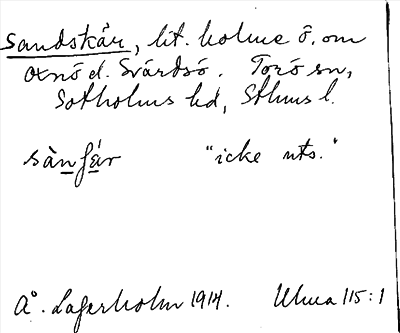 Sandskär, lit. holme ö. om
Oxnö d. Svärdsö. Torö sn,
Sotholms hd, Sthms l.
sànfár "icke uts."
Å. Lagerholm 1914. Uhma 115:1